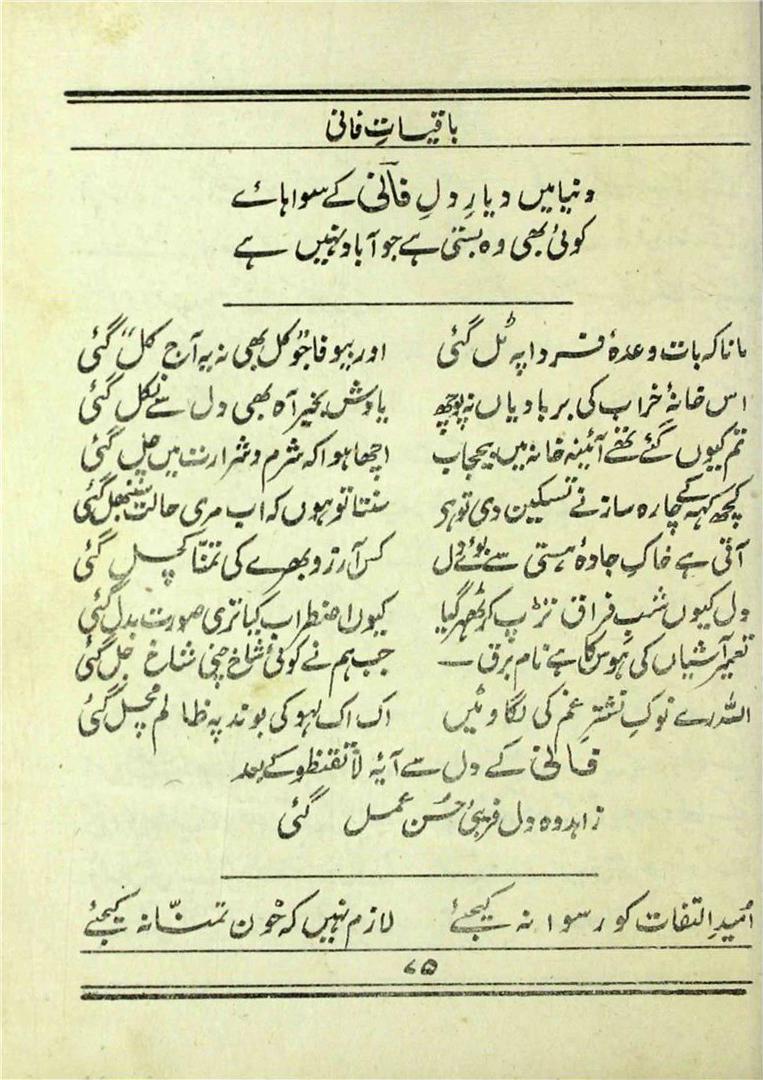 باقیاتِ فانی
دنیا میں دیارِ دلِ فانی کے سوا ہائے
کوئی بھی وہ بستی ہے جو آباد نہیں ہے
مانا کہ بات وعدۂ فردا پہ ٹل گئی اور بیوفا جو کل بھی نہ یہ آج کل" گئی
اس خانۂ خراب کی بربادیاں نہ پوچھ یادش بخیر آہ بھی دل سے نکل گئی
تم کیوں گئے تھے آئینہ خانہ میں بیحجاب اچھا ہوا کہ شرم و شرارت میں چل گئی
کچھ کہہ کے چارہ ساز نے تسکین دی تو ہی سنتا تو ہوں کہ اب مری حالت سنبھل گئی
آتی ہے خاکِ جادۂ ہستی سے بوئے دل کس آرزو بھرے کی تمنّا کچل گئی
دل کیوں شبِ فراق تڑپ کر ٹھہر گیا کیوں اضطراب کیا تری صورت بدل گئی
تعمیرِ آشیاں کی ہوس کا ہے نام برق — جب ہم نے کوئی شاخ چنی شاخ جل گئی
اللہ رے نوکِ نشترِ غم کی لگاوٹیں اک اک لہو کی بوند پہ ظالم مچل گئی
فانی کے دل سے آیۂ لاتقنطو کے بعد
زاہد وہ دل فریبئ حسن عمل گئی
اُمیدِ التفات کو رسوا نہ کیجئے لازم نہیں کہ خون تمنّا نہ کیجئے
۷۵